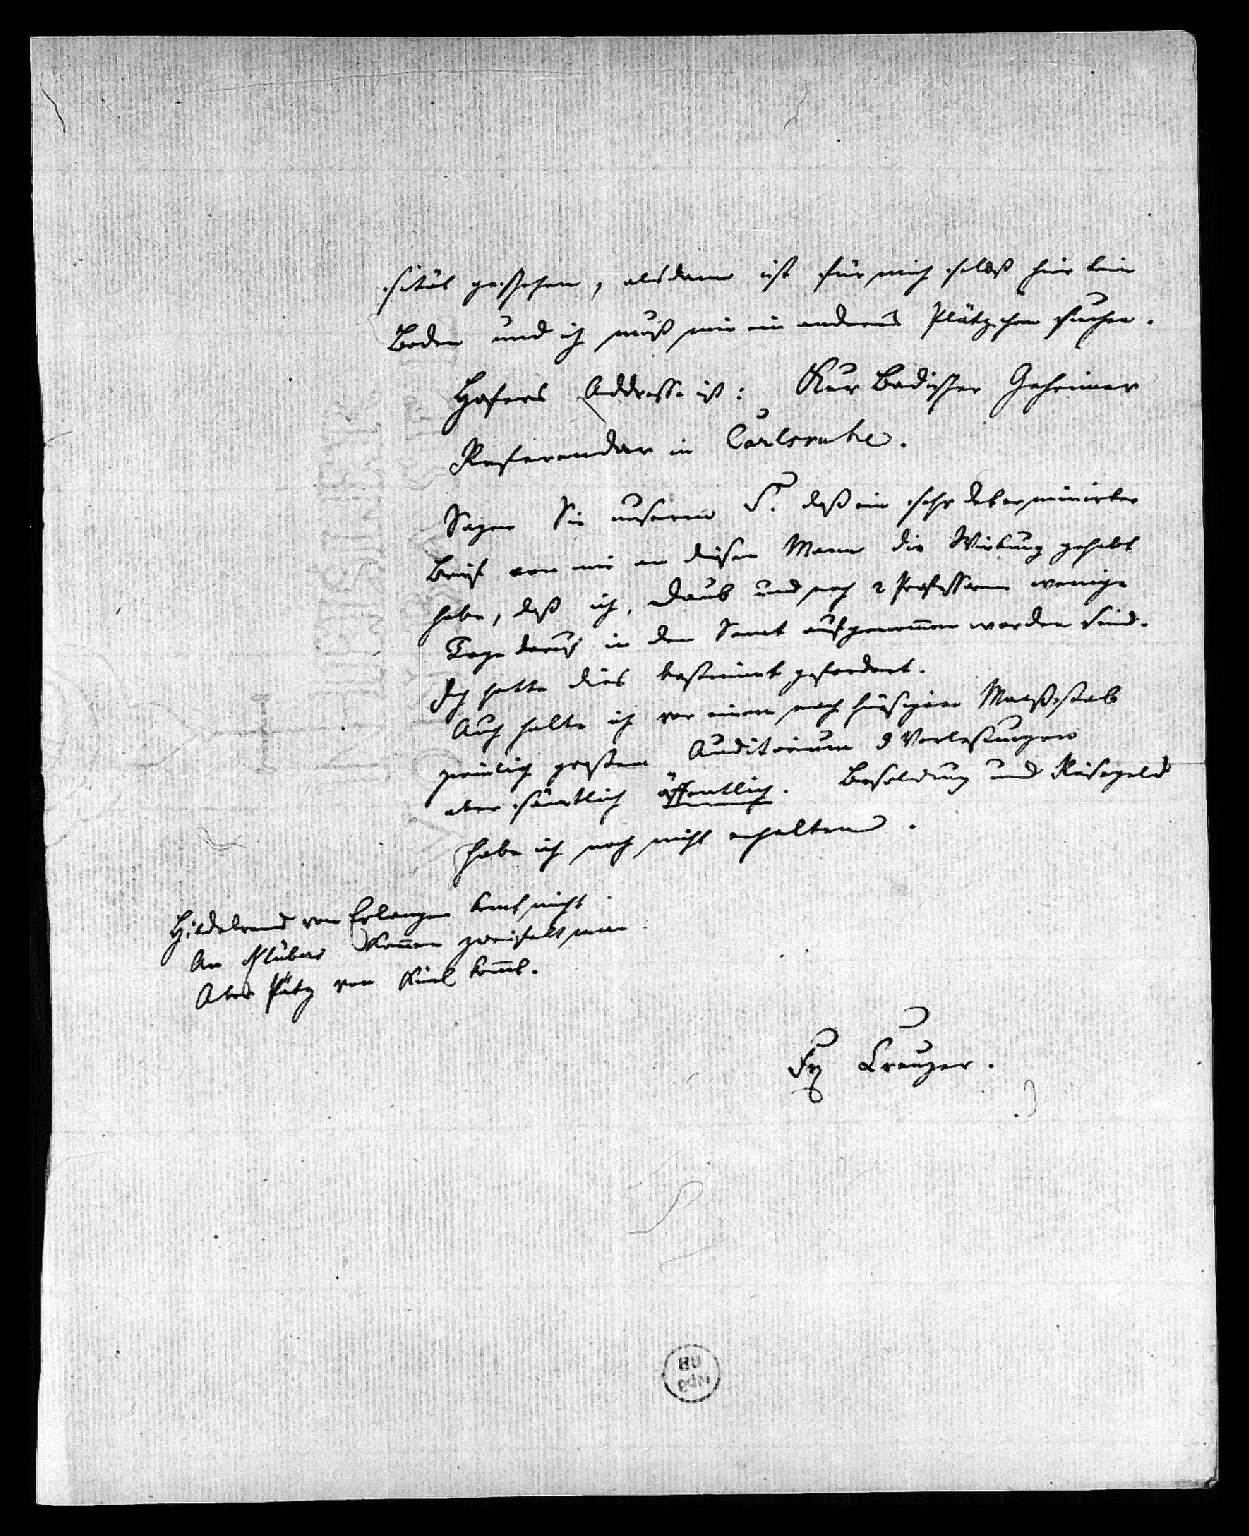 sität geschehen, alsdann ist für mich selbst hier kein
Boden und ich muß mir ein anderes Plätzchen suchen.
Hofers Addresse ist: Kur Badischer Geheimer
Referendär in Carlsruhe.
Sagen Sie unserm S. daß ein sehr determinirter
Brief von mir an diesen Mann die Wirkung gehabt
habe, daß ich, Daub und noch 2 Professoren wenige
Tage darauf in den Senat aufgenommen worden sind.
Ich hatte dies bestimmt gefordert.
Auch halte ich vor einem nach hiesigem Maaßstab
ziemlich großen Auditorium 9 Vorlesungen
aber sämtlich öffentlich. Besoldung und Reisegeld
habe ich noch nicht erhalten.
Hildebrand von Erlangen komt nicht.
An Klübers Kommen zweifelt man
Aber Pätz von Kiel kommt.
Fr Creuzer.
HU